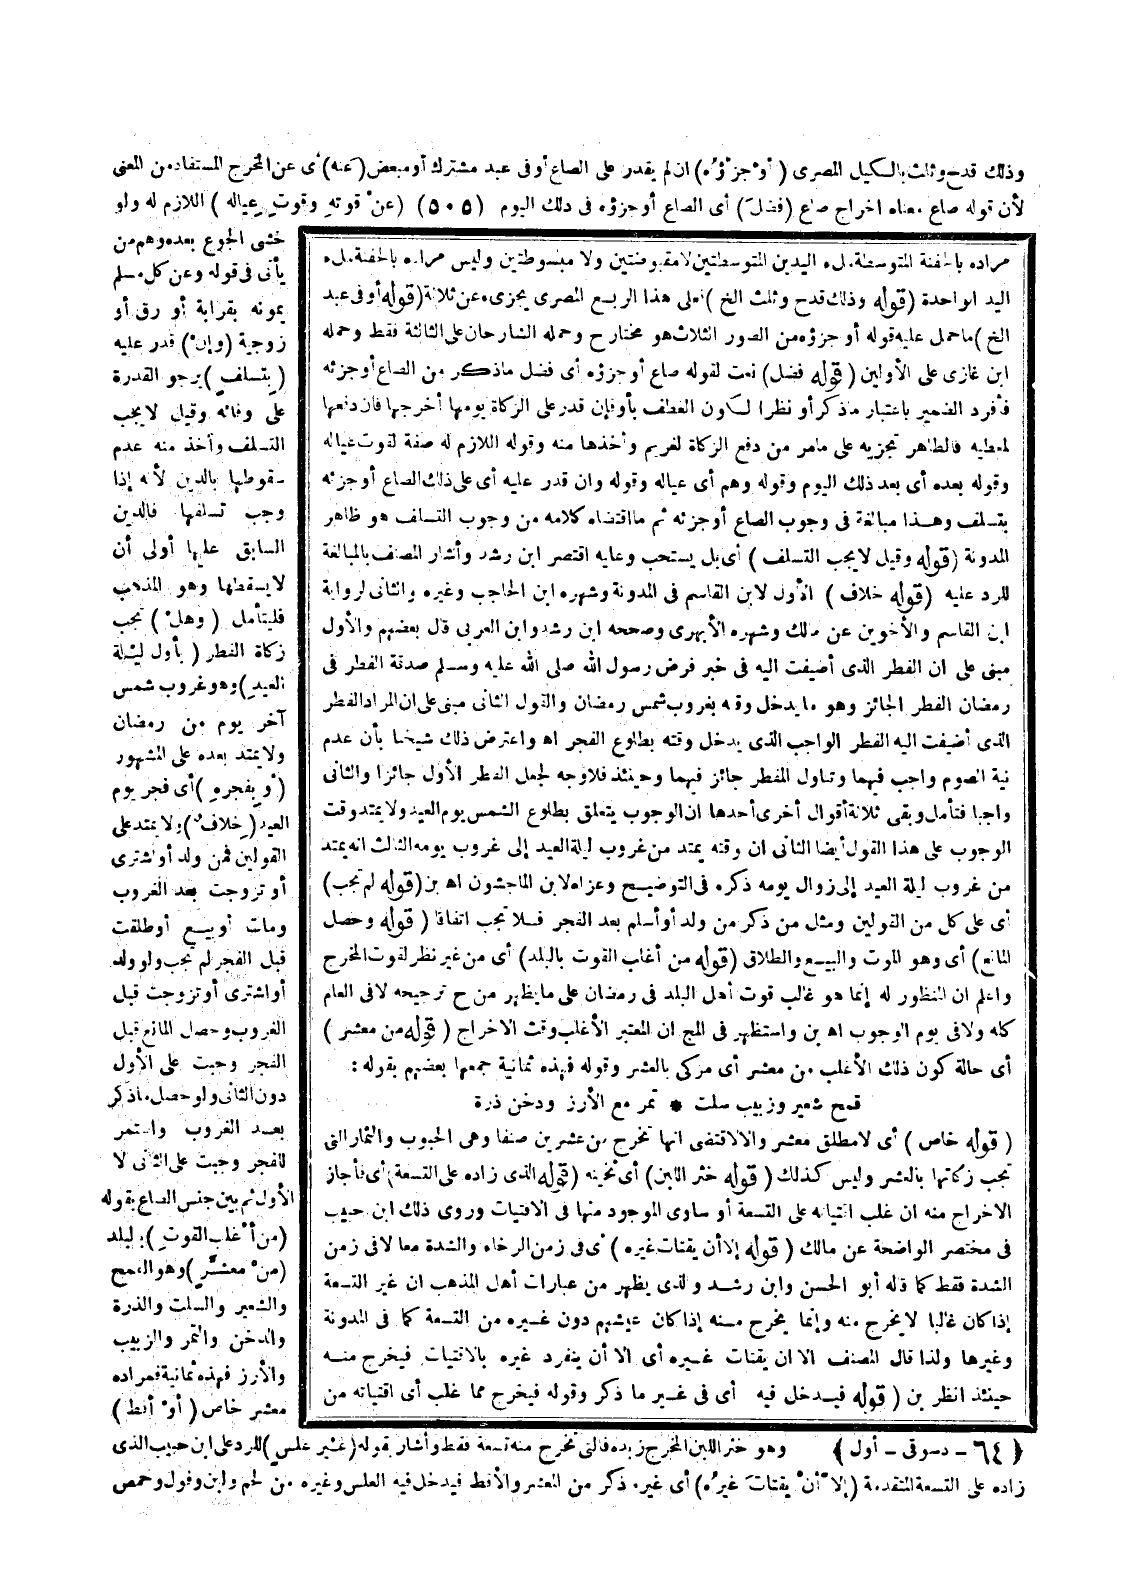 وذلك قدح وثلث بالكيل المصرى (أو جزؤه) ان لم يقدر على الصاع أو فى عبد مشترك أو مبعض (عنه) أى عن المخرج المستفاد من المعنى
لأن قوله صاع معناه اخراج صاع (فضل) أى الصاع أو جزؤه فى ذلك اليوم (٥٠٥) (عن قوته وقوت عياله) اللازم له ولو
خشى الجوع بعده وهم من
يأتى فى قوله وعن كل مسلم
يمونه بقرابة أو رق أو
زوجية (وإن) قدر عليه
(بتسلف) يرجو القدرة
على وفائه وقيل لا يجب
التسلف وأخذ منه عدم
سقوطها بالدين لأنه إذا
وجب تسلفها فالدين
السابق عليها أولى أن
لا يسقطها وهو المذهب
فليتأمل (وهل) تجب
زكاة الفطر (بأول ليلة
العيد) وهو غروب شمس
آخر يوم من رمضان
ولا يمتد بعده على المشهور
(أو بفجره) أى فجر يوم
العيد (خلاف) ولا يمتد على
القولين فمن ولد أو اشترى
أو تزوجت بعد الغروب
ومات أو بيع أو طلقت
قبل الفجر لم تجب ولو ولد
أو اشترى أو تزوجت قبل
الغروب وحصل المانع قبل
الفجر وجبت على الأول
دون الثانى ولو حصل ماذكر
بعد الغروب واستمر
للفجر وجبت على الثانى لا
الأول ثم بين جنس الصاع بقوله
(من أغلب القوت) بالبلد
(من معشر) وهو القمح
والشعير والسلت والذرة
والدخن والتمر والزبيب
والأرز فهذه ثمانية فمراده
معشر خاص (أو أقط)
مراده بالحفنة المتوسطة ملء اليدين المتوسطتين لا مقبوضتين ولا مبسوطتين وليس مراده بالحفنة ملء
اليد الواحدة (قوله وذلك قدح وثلث الخ) فعلى هذا الربع المصرى يجزىء عن ثلاثة (قوله أو فى عبد
الخ) ماحمل عليه قوله أو جزؤه من الصور الثلاث هو مختار ح وحمله الشارحان على الثالثة فقط وحمله
ابن غازى على الأولين (قوله فضل) نعت لقوله صاع أو جزؤه أى فضل ماذكر من الصاع أو جزئه
فأفرد الضمير باعتبار ماذكر أو نظرا لكون العطف بأو فإن قدر على الزكاة يومها أخرجها فان دفعها
لمعطيه فالظاهر تجزيه على مامر من دفع الزكاة لغريم وأخذها منه وقوله اللازم له صفة لقوت عياله
وقوله بعده أى بعد ذلك اليوم وقوله وهم أى عياله وقوله وان قدر عليه أى على ذلك الصاع أو جزئه
بتسلف وهذا مبالغة فى وجوب الصاع أو جزئه ثم ما اقتضاه كلامه من وجوب التسلف هو ظاهر
المدونة (قوله وقيل لا يجب التسلف) أى بل يستحب وعليه اقتصر ابن رشد وأشار المصنف بالمبالغة
للرد عليه (قوله خلاف) الأول لابن القاسم فى المدونة وشهره ابن الحاجب وغيره والثانى لرواية
ابن القاسم والأخوين عن مالك وشهره الأبهرى وصححه ابن رشد وابن العربى قال بعضهم والأول
مبنى على ان الفطر الذى أضيفت اليه فى خبر فرض رسول الله صلى الله عليه وسلم صدقة الفطر فى
رمضان الفطر الجائز وهو ما يدخل وقته بغروب شمس رمضان والقول الثانى مبنى على ان المراد الفطر
الذى أضيفت اليه الفطر الواجب الذى يدخل وقته بطلوع الفجر اه واعترض ذلك شيخنا بأن عدم
نية الصوم واجب فيهما وتناول المفطر جائز فيهما وحينئذ فلاوجه لجعل الفطر الأول جائزا والثانى
واجبا فتأمل وبقى ثلاثة أقوال أخرى أحدها ان الوجوب يتعلق بطلوع الشمس يوم العيد ولا يمتد وقت
الوجوب على هذا القول أيضا الثانى ان وقته يمتد من غروب ليلة العيد إلى غروب يومه الثالث انه يمتد
من غروب ليلة العيد إلى زوال يومه ذكره فى التوضيح وعزاه لابن الماجشون اه بن (قوله لم تجب)
أى على كل من القولين ومثل من ذكر من ولد أو أسلم بعد الفجر فلا تجب اتفاقا (قوله وحصل
المانع) أى وهو الموت والبيع والطلاق (قوله من أغلب القوت بالبلد) أى من غير نظر لقوت المخرج
واعلم ان المنظور له إنما هو غالب قوت أهل البلد فى رمضان على مايظهر من ح ترجيحه لا فى العام
كله ولا فى يوم الوجوب اه بن واستظهر فى المج ان المعتبر الأغلب وقت الاخراج (قوله من معشر)
أى حالة كون ذلك الأغلب من معشر أى مزكى بالعشر وقوله فهذه ثمانية جمعها بعضهم بقوله :
قمح شعير وزبيب سلت * تمر مع الأرز ودخن ذرة
(قوله خاص) أى لا مطلق معشر والا لاقتضى انها تخرج من عشرين صنفا وهى الحبوب والثمار التى
تجب زكاتها بالعشر وليس كذلك (قوله خثر اللبن) أى تخينه (قوله الذى زاده على التسعة) أى فأجاز
الاخراج منه ان غلب اقتياته على التسعة أو ساوى الموجود منها فى الاقتيات وروى ذلك ابن حبيب
فى مختصر الواضحة عن مالك (قوله إلا أن يقتات غيره) أى فى زمن الرخاء والشدة معا لا فى زمن
الشدة فقط كما قاله أبو الحسن وابن رشد والذى يظهر من عبارات أهل المذهب ان غير التسعة
إذا كان غالبا لا يخرج منه وإنما يخرج منه إذا كان عيشهم دون غيره من التسعة كما فى المدونة
وغيرها ولذا قال المصنف الا ان يقتات غيره أى الا أن ينفرد غيره بالاقتيات فيخرج منه
حينئذ انظر بن (قوله فيدخل فيه أى فى غير ما ذكر وقوله فيخرج مما غلب أى اقتياته من
(٦٤ - دسوقى - أول) وهو خثر اللبن المخرج زبده فالتى تخرج منه تسعة فقط وأشار بقوله (غير علس) للرد على ابن حبيب الذى
زاده على التسعة المتقدمة (إلا أن يقتات غيره) أى غير ما ذكر من المعشر والأقط فيدخل فيه العلس وغيره من لحم ولبن وفول وحمص